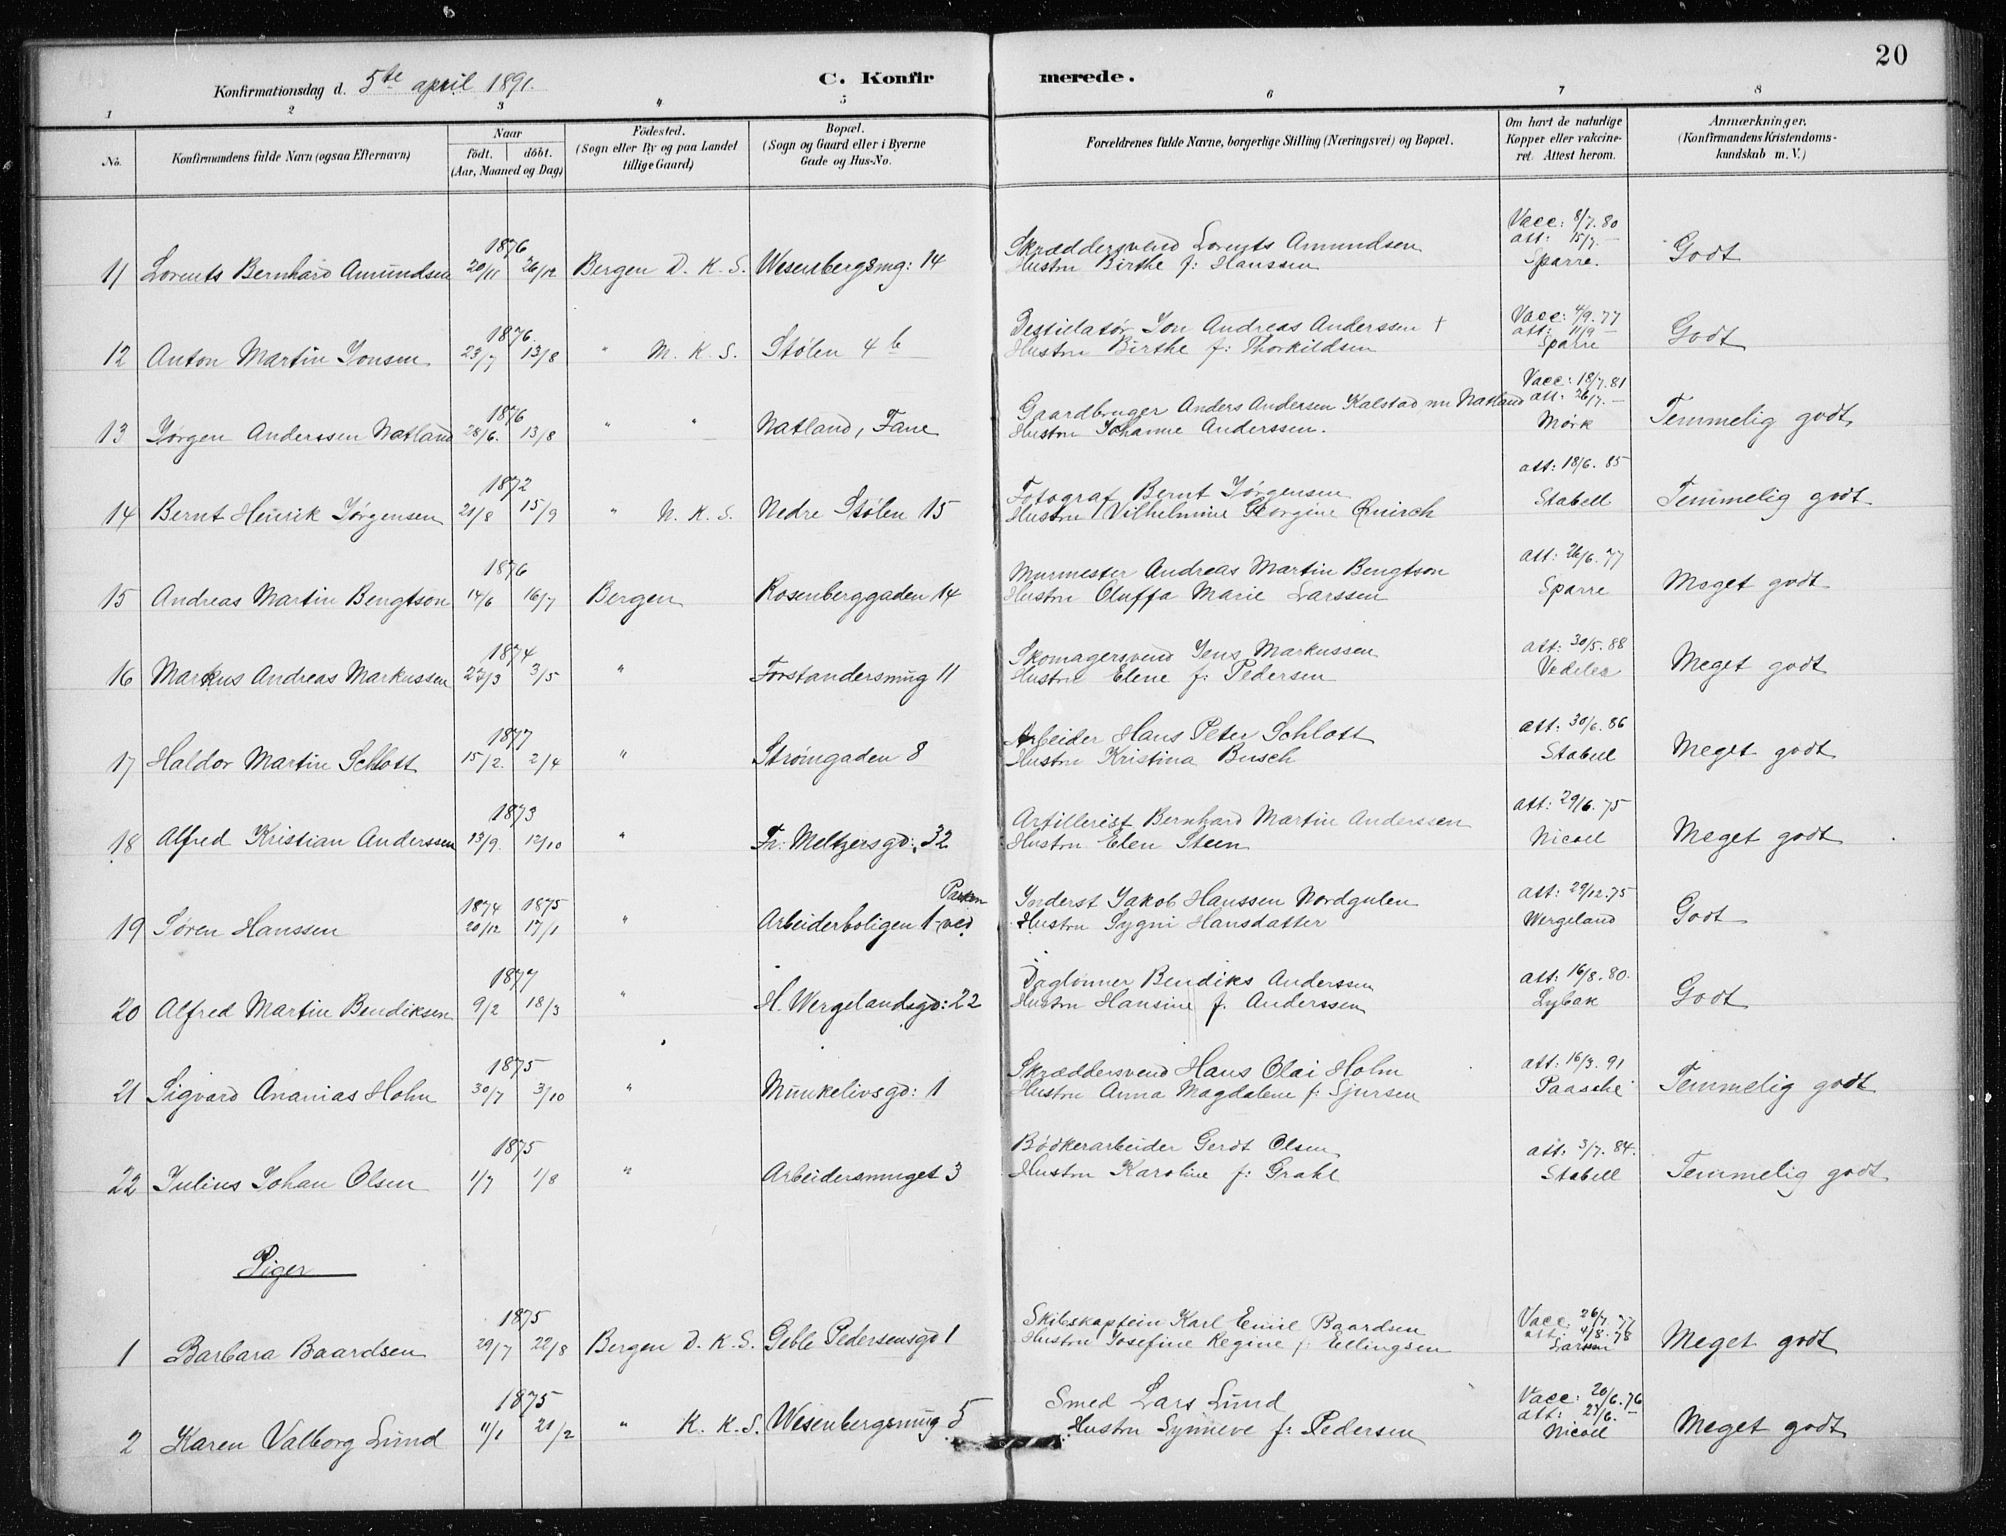 20
Konfirmationsdag d. 5te april 1891.
C. Konfirmerede.
1 2 3 4 5 6 7 8
No.
Konfirmandens fulde Navn (ogsaa Efternavn)
Naar
født. døbt.
(Aar, Maaned og Dag)
Fødested.
(Sogn eller By og paa Landet
tillige Gaard)
Bopæl.
(Sogn og Gaard eller i Byerne
Gade og Hus-No.
Forældrenes fulde Navne, borgerlige Stilling (Næringsvei) og Bopæl.
Om havt de naturlige
Kopper eller vakcine-
ret. Attest herom.
Anmærkninger.
(Konfirmandens Kristendoms-
kundskab m. V.)
1876 Skræddersvend Lorents Amundsen Vacc: 8/7. 80
att: 15/7. —
11 Lorents Bernhard Amundsen 20/11 26/12 Bergen D. K. S. Wesenbergsmg: 14 Hustru Birthe f: Hanssen Sparre. Godt
1876. Destilatør Jon Andreas Anderssen + Vacc: 4/9. 77
att: 11/9 —
12 Anton Martin Jonsen 23/7 13/8 " M. K. S. Stølen 4 b Hustru Birthe f: Thorkildsen Sparre Godt
1876 Gaardbruger Anders Andersen Kalstad nu Natland Vacc: 18/7. 81
att: 26/7. —
13 Jørgen Anderssen Natland 28/6. 13/8 " " Natland, Fane Hustru Johanne Anderssen. Mørk Temmelig godt
1872 Fotograf Bernt Jørgensen att: 18/6. 85
14 Bernt Henrik Jørgensen 21/8 15/9 " N. K. S. Nedre Stølen 15 Hustru Vilhelmine Georgine Quirch Stabell Temmelig godt
1876 Murmester Andreas Martin Bengtson att: 26/6. 77
15 Andreas Martin Bengtson 14/6 16/7 Bergen Rosenberggaden 14 Hustru Oluffa Marie Larssen Sparre Meget godt
1874 Skomagersvend Jens Markussen att: 30/5. 88
16 Markus Andreas Markussen 3/5 " Forstandersmug 11 Hustru Elene f: Pedersen Vedeler Meget godt
1877 Arbeider Hans Peter Schlott att: 30/6. 86
17 Haldor Martin Schlott 15/2. 2/4 " Strømgaden 8 Hustru Kristina Busch Stabell Meget godt
1873 Artillerist Bernhard Martin Anderssen att: 29/6. 75
18 Alfred Kristian Anderssen 13/9. 12/10 " Fr: Meltzersgd: 32 Hustru Elen Steen Nicoll Meget godt
1874 1875 Parken Inderst Jakob Hanssen Nordgulen att: 29/12. 75
19 Søren Hanssen 20/12 17/1 " Arbeiderboligen 1 ved Hustru Sygni Hansdatter Wergeland Godt
1877 Daglønner Bendiks Anderssen att: 16/8. 80.
20 Alfred Martin Bendiksen 9/2 18/3 " H. Wergelandsgd: 22 Hustru Hansine f. Anderssen Lybæk Godt
1875 Skræddersvend Hans Olai Holm att: 16/3. 91
21 Sigvard Ananias Holm 30/7 3/10 " Munkelivsgd: 1 Hustru Anna Magdalene f: Sjursen Paasche Temmelig godt
1875 Bødkerarbeider Gerdt Olsen att: 3/7. 84.
22 Julius Johan Olsen 1/7 1/8 " Arbeidersmuget 3 Hustru Karoline f: Grahl Stabell Temmelig godt
Piger
1875 Skibskaptein Karl Emil Baardsen Vacc: 26/7. 77
att: 4/8. 78
1 Barbara Baardsen 29/7 22/8 Bergen D. K. S. Geble Pedersensgd 1 Hustru Josefine Regine f: Ellingsen Larssen Meget godt
1875 Smed Lars Lund Vacc: 20/6. 76
att: 27/6. —
2 Karen Valborg Lund 11/1 21/2 " K. K. S. Wesenbergsmug 5 Hustru Synneve f: Pedersen Nicoll Meget godt